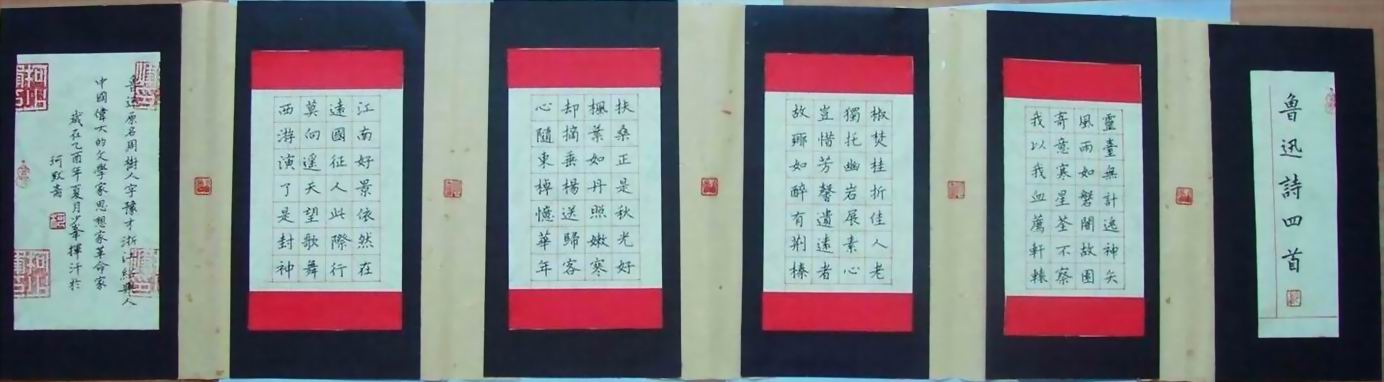 魯迅詩四首
靈臺無計逃神矢
風雨如磐闇故園
寄意寒星荃不察
我以我血薦軒轅
椒焚桂折佳人老
獨托幽岩展素心
豈惜芳馨遺遠者
故鄉如醉有荊榛
扶桑正是秋光好
楓葉如丹照嫩寒
却摘垂楊送歸客
心隨東棹憶華年
江南好景依然在
遠國征人此際行
莫向遥天望歌舞
西游演了是封神
魯迅原名周樹人字豫才浙江紹興人
中國偉大的文學家思想家革命家
歲在乙酉年夏月少華揮汗於
默齋